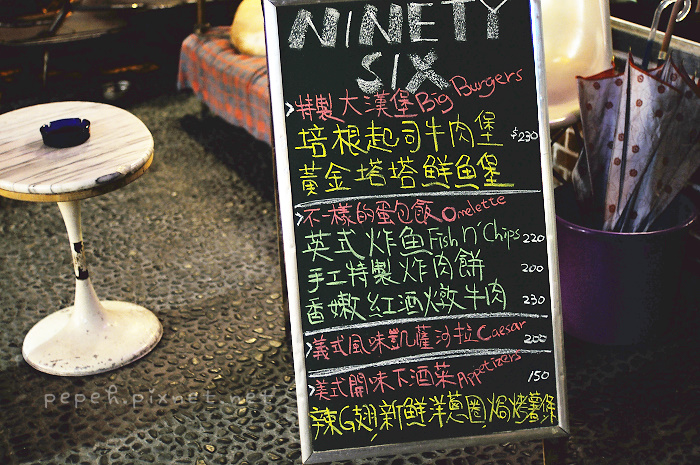 NINETY
SIX
特製大漢堡 Big Burgers
培根起司牛肉堡 $230
黃金塔塔鮮魚堡
不一樣的蛋包飯 Omelette
英式炸魚 Fish n' Chips 220
手工特製炸肉餅 200
香嫩紅酒燉牛肉 230
義式風味凱薩沙拉 Caesar 200
美式開味下酒菜 Appetizers 150
辣G翅,新鮮洋蔥圈,焗烤薯條
pepeh.pixnet.net